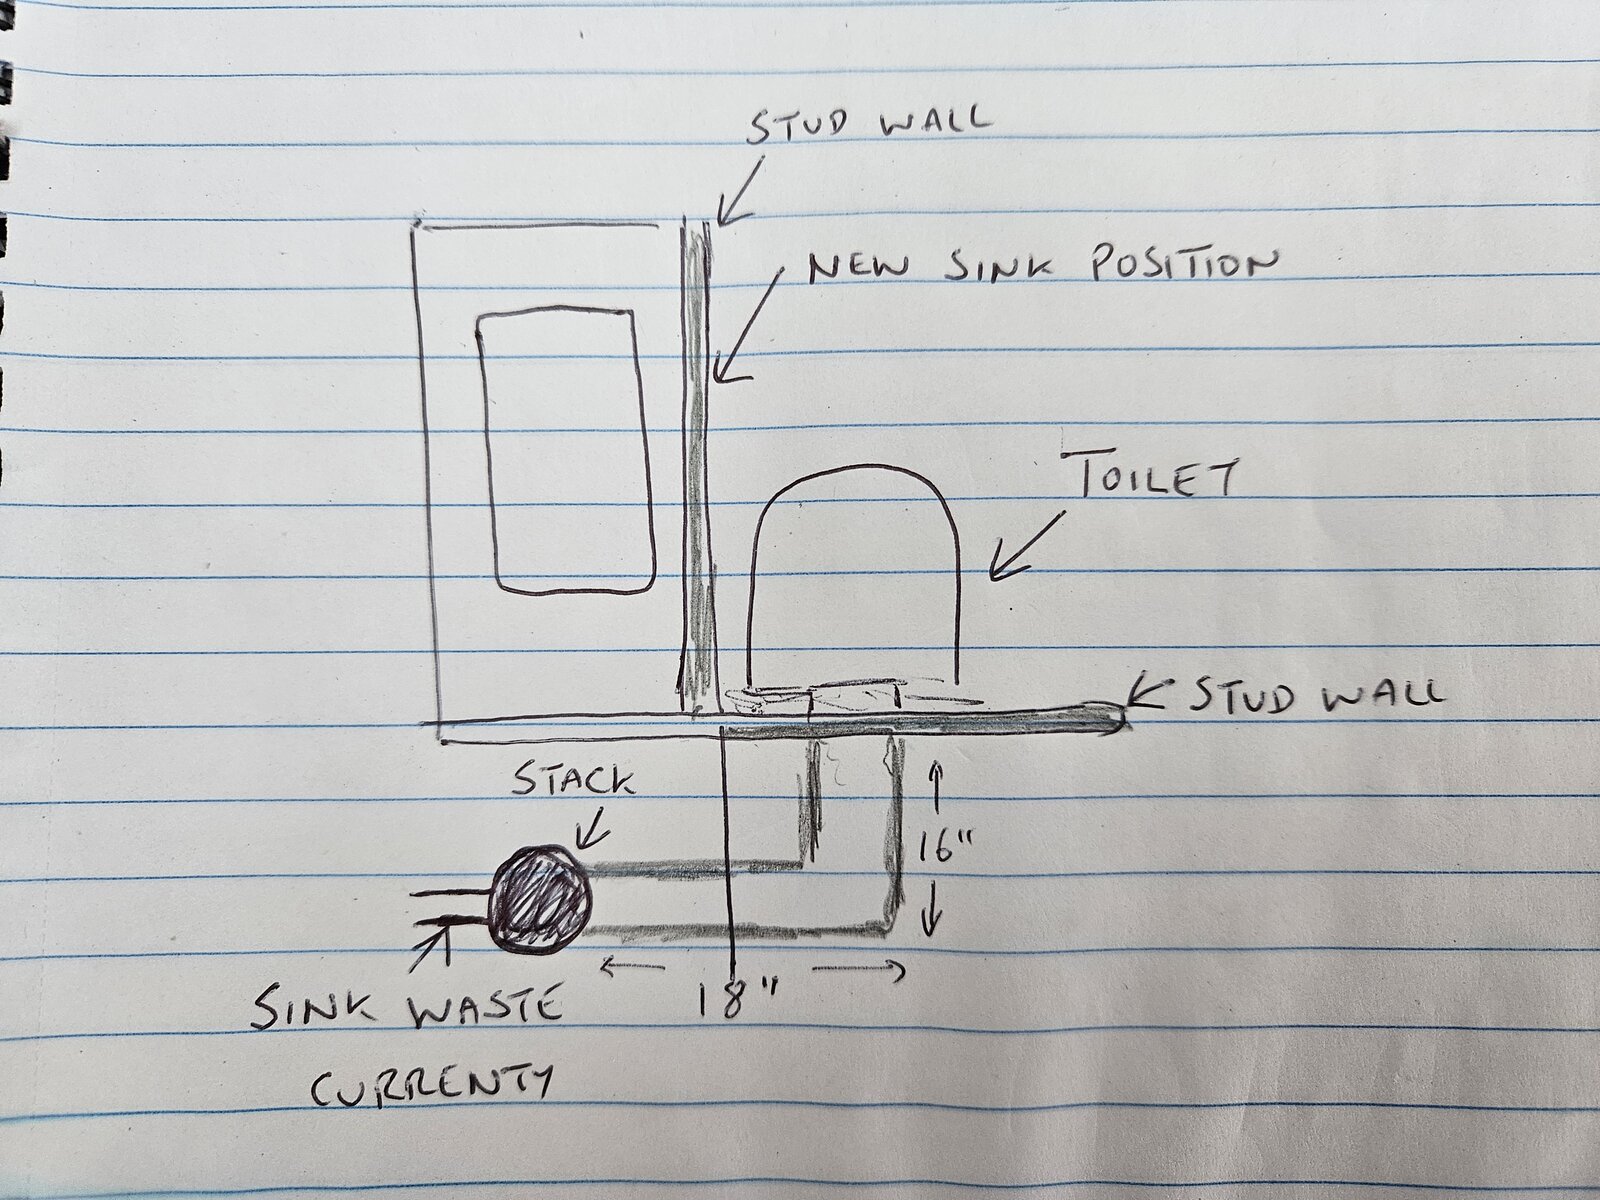 STUD WALL
NEW SINK POSITION
TOILET
STUD WALL
STACK
16"
18"
SINK WASTE
CURRENTY